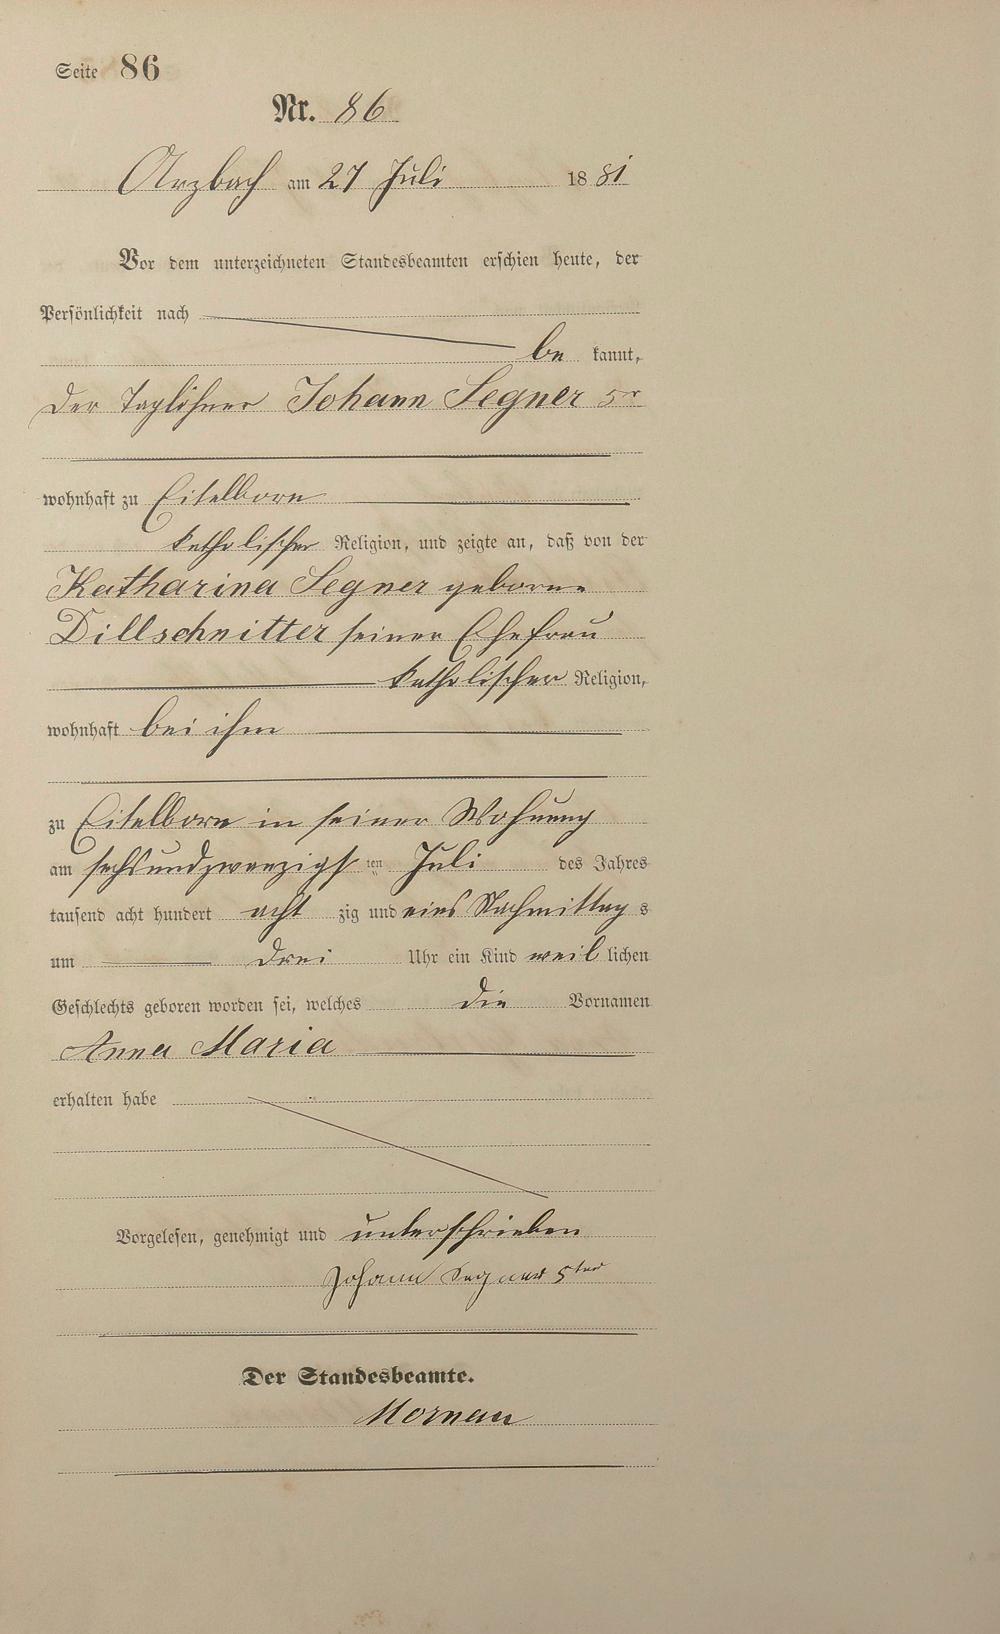 Seite 86
Nr. 86
Arzbach am 27 Juli 1881
Vor dem unterzeichneten Standesbeamten erschien heute, der
Persönlichkeit nach
be kannt,
der Taglöhner Johann Segner 5r
wohnhaft zu Eitelborn
katholischer Religion, und zeigte an, daß von der
Katharina Segner geborne
Dillschnitter seiner Ehefrau
katholischer Religion,
wohnhaft bei ihm
zu Eitelborn in seiner Wohnung
am sechsundzwanzigsten Juli des Jahres
tausend acht hundert acht zig und eins Nachmittag s
um drei Uhr ein Kind weiblichen
Geschlechts geboren worden sei, welches die Vornamen
Anna Maria
erhalten habe
Vorgelesen, genehmigt und unterschrieben
Johann Segner 5ter
Der Standesbeamte.
Mornau